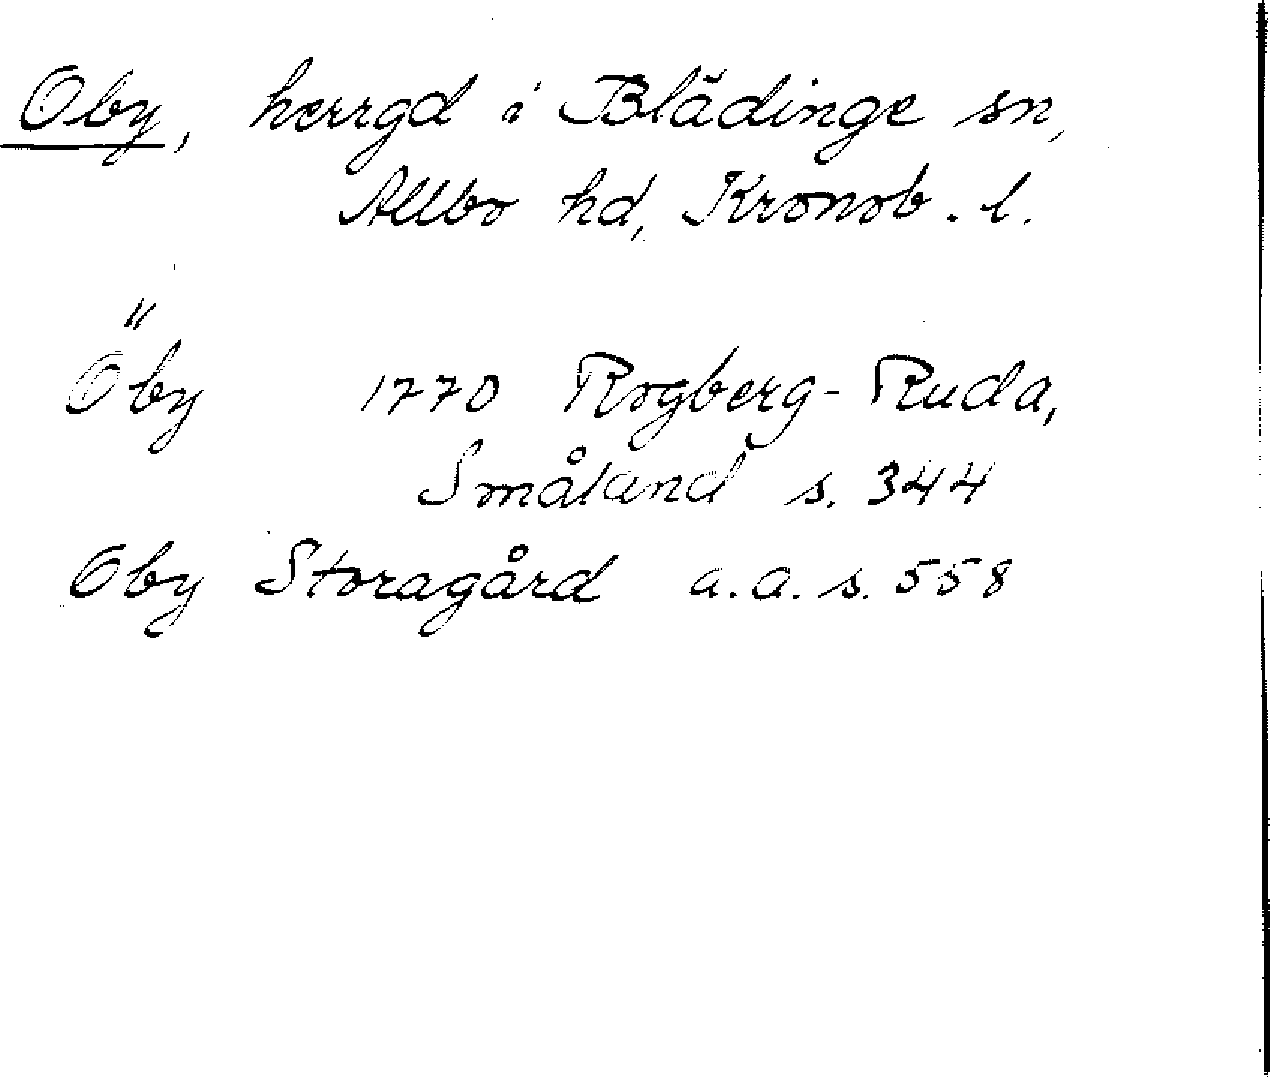 Oby, herrgd i Blädinge sn,
Allbo hd, Kronob. l.
Öby 1770 Rogberg-Ruda,
Småland s. 344
Oby Storagård a.a. s. 558